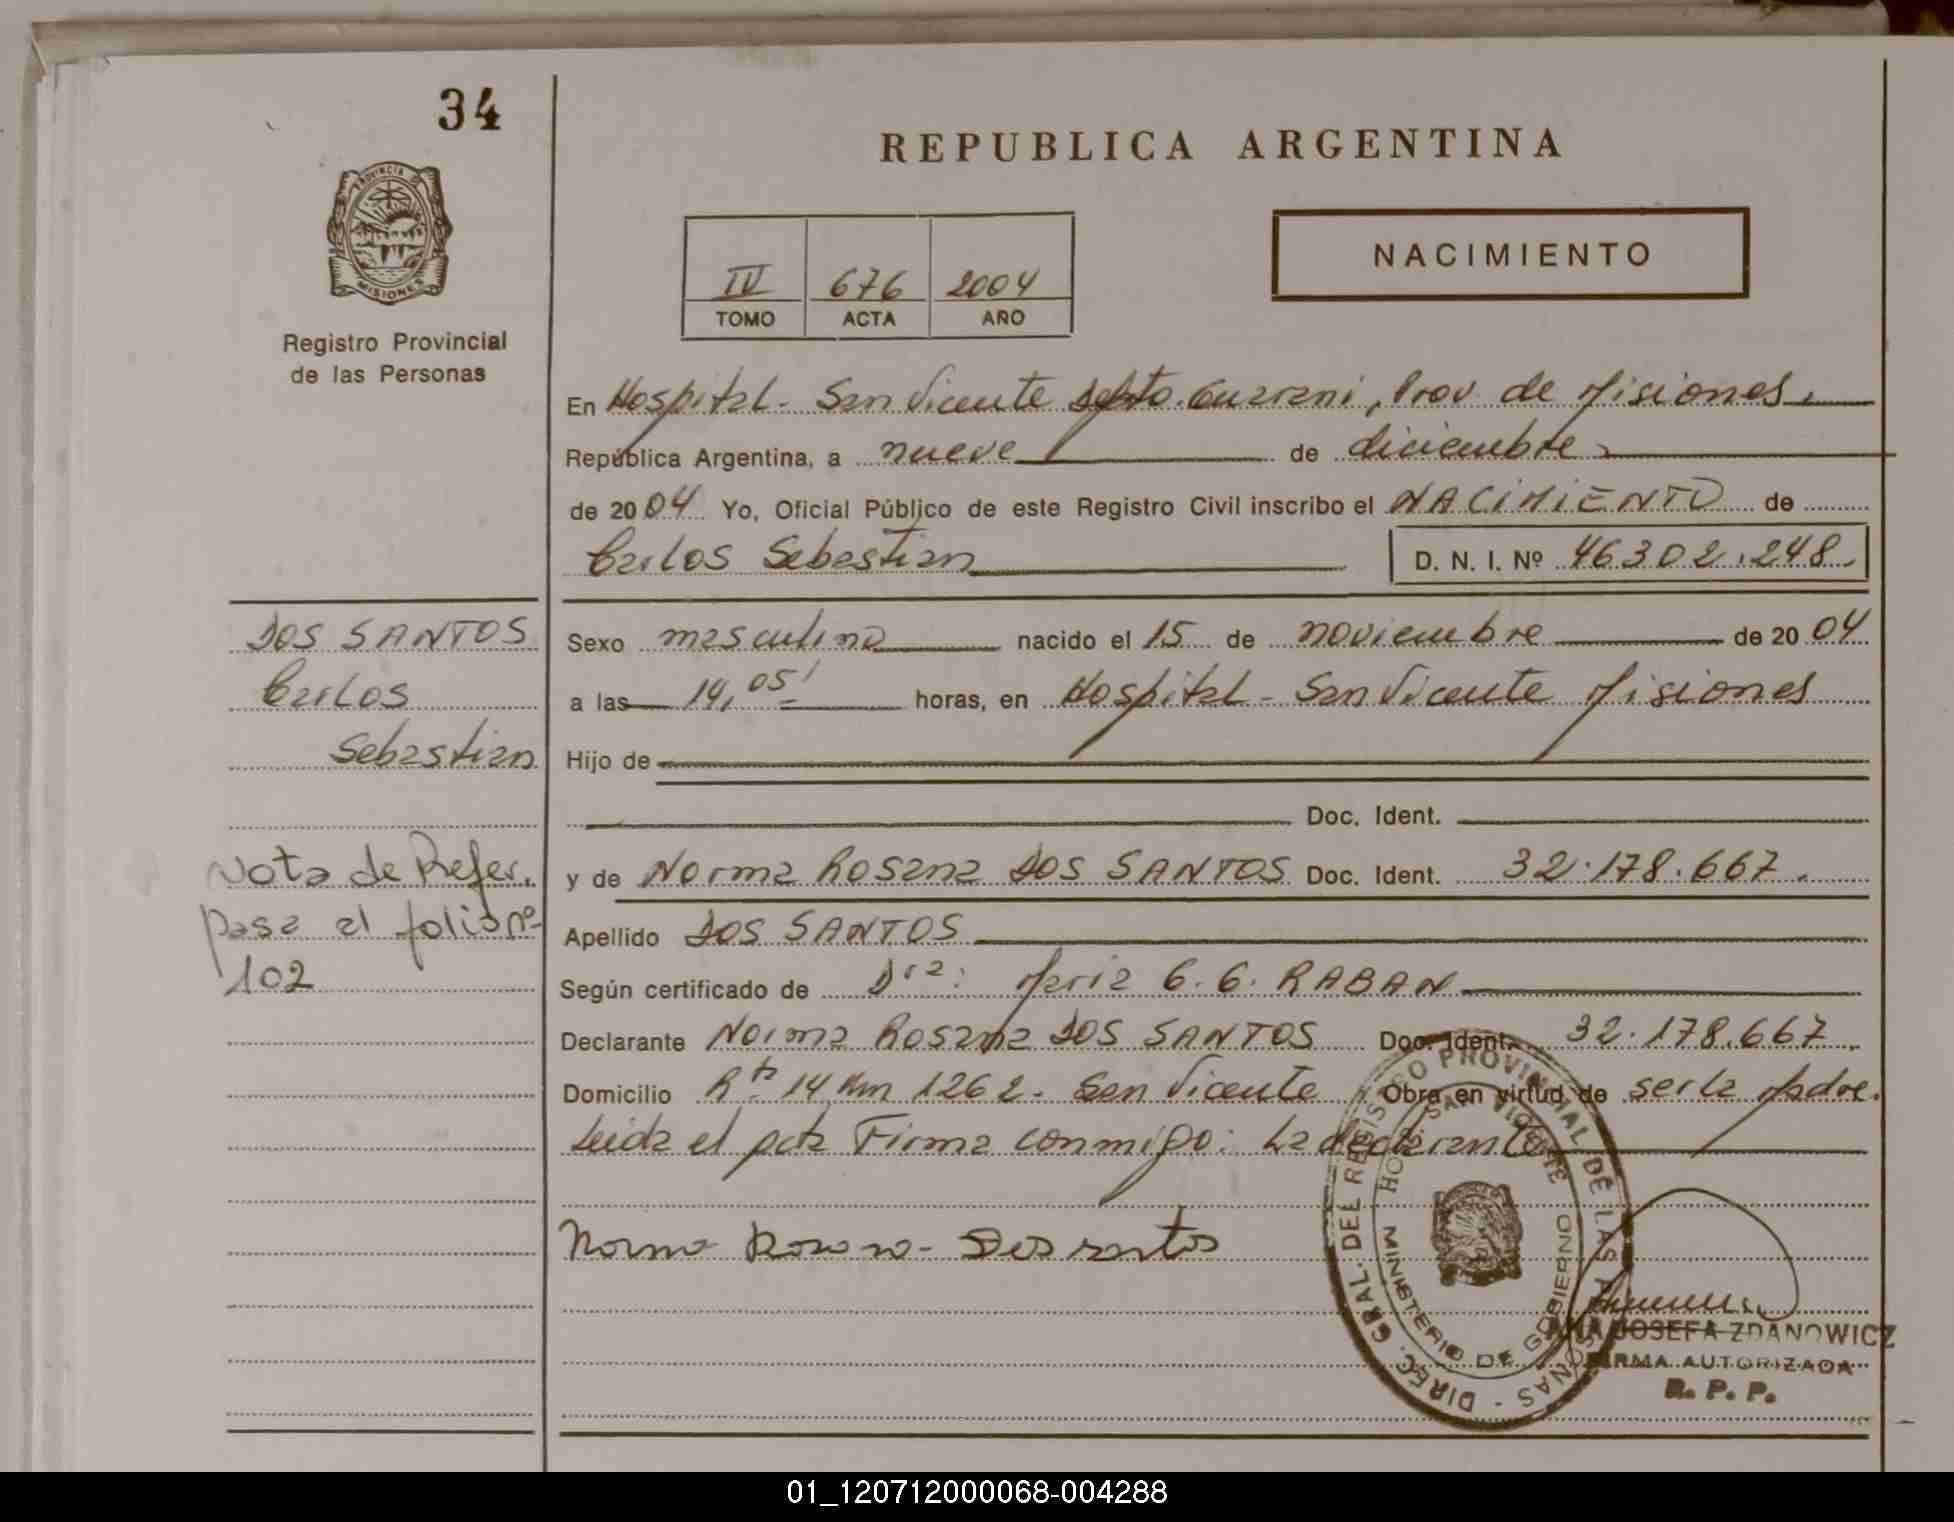 34
PROVINCIA DE
MISIONES
Registro Provincial
de las Personas
REPUBLICA ARGENTINA
IV 676 2004
TOMO ACTA AÑO
NACIMIENTO
En Hospital - San Vicente Depto. Guarani, Prov. de Misiones.
República Argentina, a nueve de diciembre
de 2004 Yo, Oficial Público de este Registro Civil inscribo el NACIMIENTO de
Carlos Sebastian D. N. I. Nº 46302.248.
DOS SANTOS
Carlos
Sebastian
Nota de Refer.
pasa al folio nº
102
Sexo masculino nacido el 15 de noviembre de 2004
a las 14,05' horas, en Hospital - San Vicente Misiones
Hijo de
Doc. Ident.
y de Norma Rosana DOS SANTOS Doc. Ident. 32.178.667.
Apellido DOS SANTOS
Según certificado de Dra: Maria G. G. RABAN
Declarante Norma Rosana DOS SANTOS Doc. Ident. 32.178.667
Domicilio Rta 14 Km 1262 - San Vicente Obra en virtud de ser la Madre.
Leida el acta Firma conmigo: La declarante
Norma Rosana - Dos santos
DIREC. GRAL. DEL REGISTRO PROVINCIAL DE LAS PERSONAS -
SAN VICENTE
MINISTERIO DE GOBIERNO
ANA JOSEFA ZDANOWICZ
FIRMA AUTORIZADA
R. P. P.
01_120712000068-004288